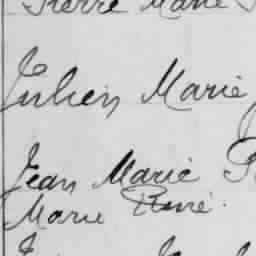 Pierre Marie
Julien Marie
Jean Marie
Marie René.